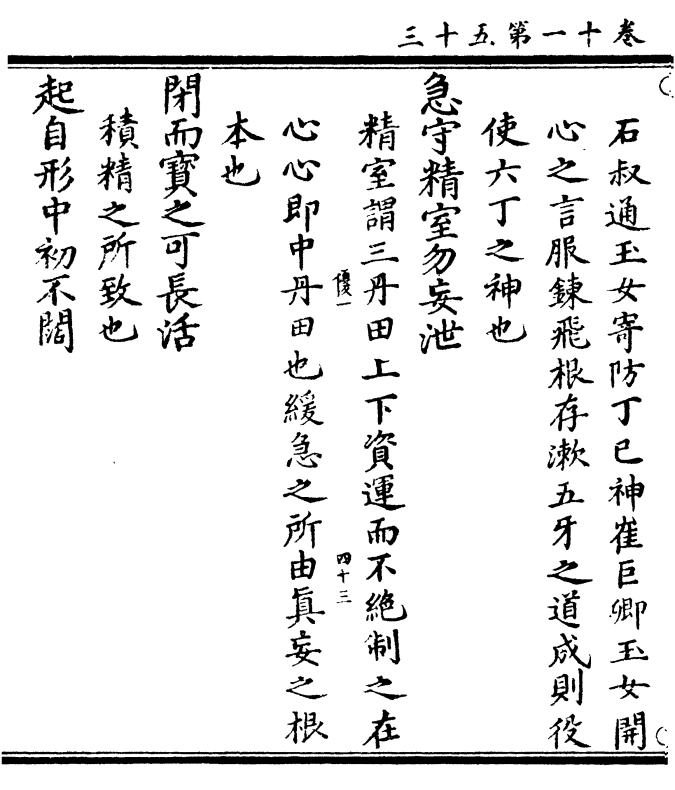 卷十一第五十三
石叔通玉女寄防丁巳神崔巨卿玉女開
心之言服鍊飛根存漱五牙之道成則役
使六丁之神也
急守精室勿妄泄
精室謂三丹田上下資運而不絕制之在
優一
四十三
心心即中丹田也緩急之所由眞妄之根
本也
閉而寶之可長活
積精之所致也
起自形中初不闊